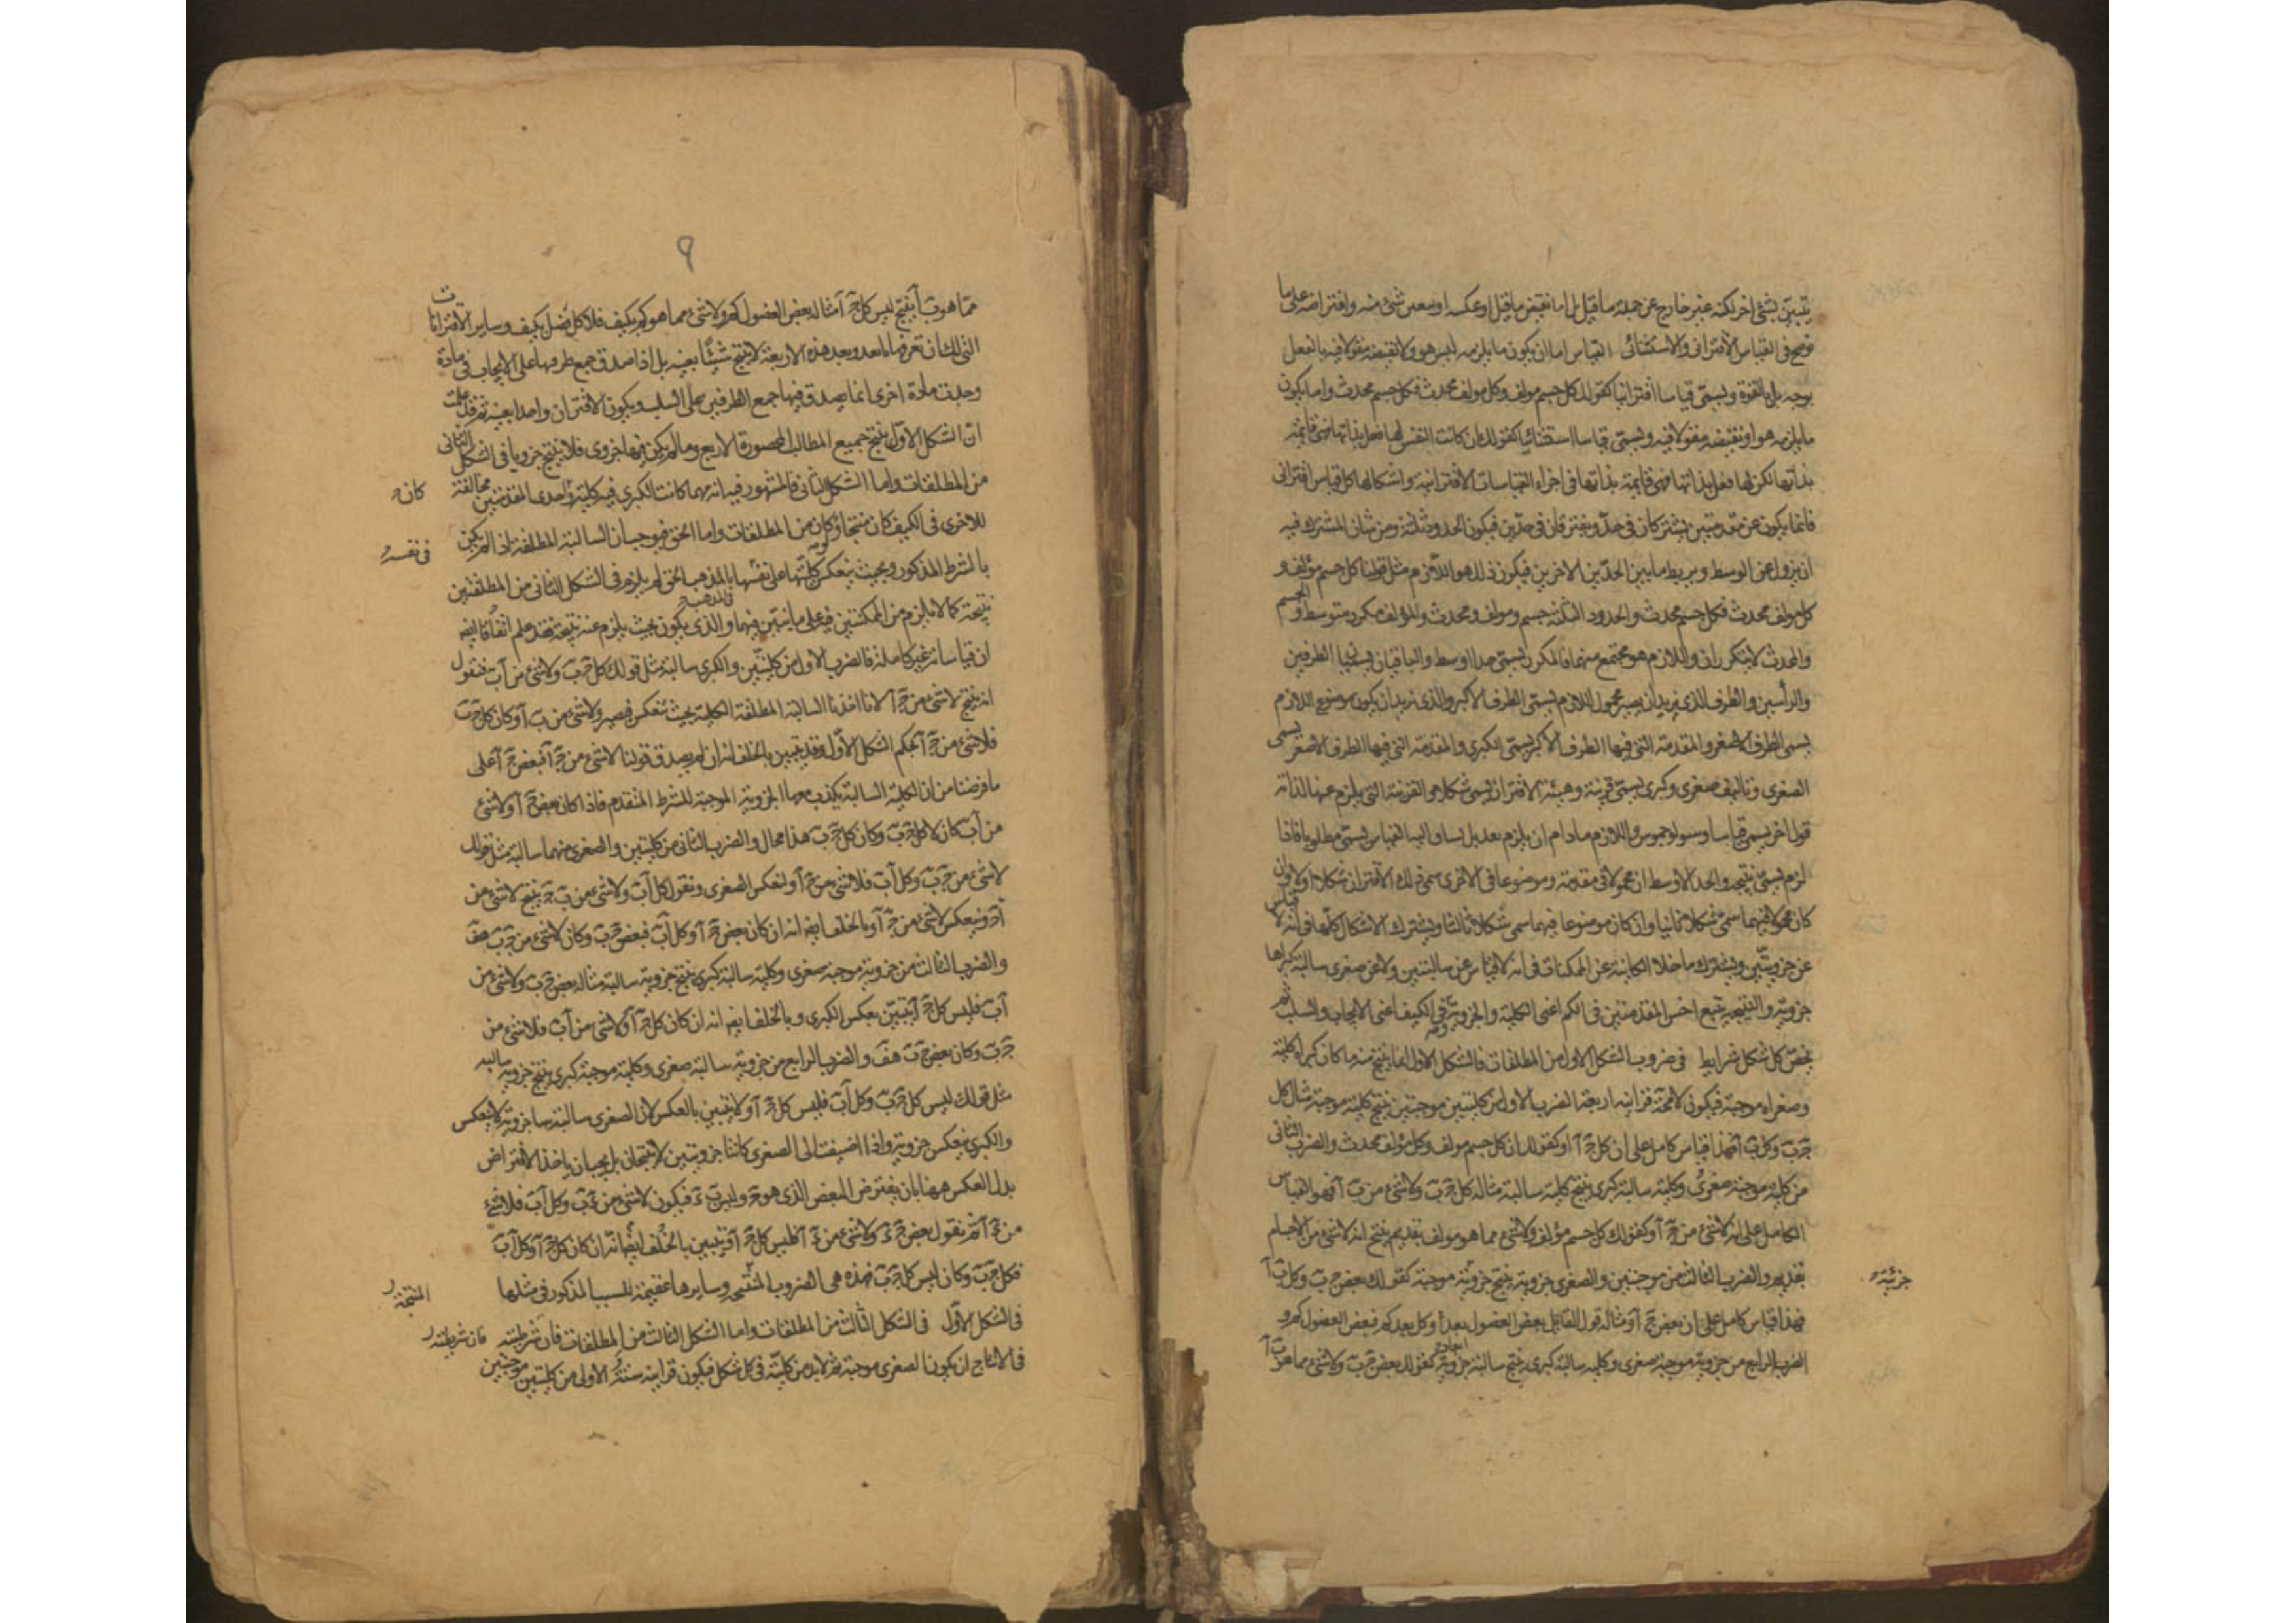 يتبين بشئ اخر لكنه غير خارج عن جملة ما قيل بل اما نقيض ما قيل او عكسه او بعض شئ منه وافتراضه على ما
نوضح فى القياس الاقترانى والاستثنائى القياس اما ان يكون ما يلزمه ليس هو ولا نقيضه مقولا فيه بالفعل
بوجه بل بالقوة ويسمى قياسا اقترانيا كقولك كل جسم مولف وكل مولف محدث فكل جسم محدث واما يكون
ما يلزمه هو او نقيضه مقولا فيه ويسمى قياسا استثنائيا كقولك ان كانت النفس لها فعل بذاتها فهى قايمة
بذاتها لكن لها فعل بذاتها فهى قايمة بذاتها فى اجزاء القياسات الاقترانية واشكالها كل قياس اقترانى
فانما يكون عن مقدمتين يشتركان فى حد ويفترقان فى حدين فيكون الحدود ثلثة ومن شان المشترك فيه
ان يزول عن الوسط ويربط ما بين الحدين الاخرين فيكون ذلك هو اللازم مثل قولنا كل جسم مؤلف و
كل مولف محدث فكل جسم محدث والحدود الثلثة جسم ومولف ومحدث والمؤلف مكرر متوسط والجسم
والمحدث لا يتكرران واللازم هو مجتمع منهما فالمكرر يسمى حدا اوسط والباقيان يسميان الطرفين
والرأسين والطرف الذى نريد ان يصير محمول اللازم يسمى الطرف الاكبر والذى نريد ان يكون موضوع اللازم
يسمى الطرف الاصغر والمقدمة التى فيها الطرف الاكبر يسمى الكبرى والمقدمة التى فيها الطرف الاصغر يسمى
الصغرى وتاليف صغرى وكبرى يسمى قرينة وهيئة الاقتران يسمى شكلا والقرينة التى يلزم عنها لذاته
قولا اخر يسمى قياسا وسولوجموس واللازم ما دام لم يلزم بعد بل يساق اليه القياس يسمى مطلوبا فاذا
لزم يسمى نتيجة والحد الاوسط ان محمولا فى مقدمة وموضوعا فى الاخرى سمى ذلك الاقتران شكلا اولا وان
كان محمولا فيهما سمى شكلا ثانيا وان كان موضوعا فيهما سمى شكلا ثالثا ويشترك الاشكال كلها فى انه لا قياس
عن جزويتين ويشترك ما خلا الكاينة عن الممكنات فى انه لا قياس عن سالبتين ولا عن صغرى سالبة كبراها
جزوية والنتيجة يتبع اخس المقدمتين فى الكم اعنى الكلية والجزوية وفى الكيف اعنى الايجاب والسلب ثم
يخص كل شكل شرايط فى ضروب الشكل الاول من المطلقات فالشكل الاول انما ينتج منه ما كان كبراه كلية
وصغراه موجبة فيكون لا محة قراينه اربعة الضرب الاول من كليتين موجبتين ينتج كلية موجبة مثاله كل
جَ بَ وكل بَ آ فهذا قياس كامل على ان كل جَ آ او كقولك ان كل جسم مولف وكل مؤلف محدث والضرب الثانى
من كلية موجبة صغرى وكلية سالبة كبرى ينتج كلية سالبة مثاله كل جَ بَ ولا شئ من بَ آ فهو القياس
الكامل على انه لا شئ من جَ آ او كقولك كل جسم مؤلف ولا شئ مما هو مولف بقديم ينتج انه لا شئ من الاجسام
بقديم والضرب الثالث من موجبتين والصغرى جزوية ينتج جزوية موجبة كقولك بعض جَ بَ وكل بَ آ
جزئية
فهذا قياس كامل على ان بعض جَ آ ومثاله قول القايل بعض الفصول بعد وكل بعد كم فبعض الفصول كم و
الضرب الرابع من جزوية موجبة صغرى وكلية سالبة كبرى ينتج سالبة جزوية كقولك بعض جَ بَ ولا شئ مما هو بَ آ
٩
مما هو بَ آ ينتج ليس كل جَ آ مثاله بعض الفصول كم ولا شئ مما هو كم بكيف فلا كل فصل بكيف وساير الاقترانات
التى لك ان تعرفها بعد وبعد هذه الاربعة لا ينتج شيئا بعينه بل اذا صدق جمع طرفيها على الايجاب فى مادة
وجدت مادة اخرى انما يصدق فيها جمع الطرفين على السلب ويكون الاقتران واحدا بعينه ثم قد علمت
ان الشكل الاول ينتج جميع المطالب المحصورة الاربع وما لم يكن فيها جزوى فلا ينتج جزويا فى الشكل الثانى
من المطلقات واما الشكل الثانى فالمشهور فيه انه مهما كانت الكبرى فيه كلية واحدى المقدمتين مخالفة
كان
للاخرى فى الكيف كان منتجا ولو كان من المطلقات واما الحق فيوجب ان السالبة المطلقة اذا لم يكن
فى نفسه
بالشرط المذكور وبحيث ينعكس كليتها على نفسها بالمذهب الحق لم يلزم فى الشكل الثانى من المطلقتين
نتيجة كما لا يلزم من الممكنتين فيه على ما نبين فيها والذى يكون بحيث يلزم عنه نتيجة فقد علم اتفاقا ايضا
ان قياساته غير كاملة فالضرب الاول من كليتين والكبرى سالبة مثل قولك كل جَ بَ ولا شئ من آ بَ فنقول
انه ينتج لا شئ من جَ آ لانا اخذنا السالبة المطلقة الكلية بحيث تنعكس فيصير ولا شئ من بَ آ وكان كل جَ بَ
فلا شئ من جَ آ بحكم الشكل الاول وقد يتبين بالخلف انه ان لم يصدق قولنا لا شئ من جَ آ فبعض جَ آ على
ما فرضنا من ان الكلية السالبة يكذب معها الجزوية الموجبة للشرط المتقدم فاذا كان بعض جَ آ ولا شئ
من آ بَ كان لا كل جَ بَ وكان كل جَ بَ هذا محال والضرب الثانى من كليتين والصغرى منهما سالبة مثل قولك
لا شئ من جَ بَ وكل آ بَ فلا شئ من جَ آ ولنعكس الصغرى ونقول كل آ بَ ولا شئ من بَ جَ ينتج لا شئ من
آ جَ وينعكس لا شئ من جَ آ وبالخلف ايضا انه ان كان بعض جَ آ وكل آ بَ فبعض جَ بَ وكان لا شئ من جَ بَ هف
والضرب الثالث من جزوية موجبة صغرى وكلية سالبة كبرى ينتج جزوية سالبة مثاله بعض جَ بَ ولا شئ من
آ بَ فليس كل جَ آ يتبين بعكس الكبرى وبالخلف ايضا انه ان كان كل جَ آ ولا شئ من آ بَ فلا شئ من
جَ بَ وكان بعض جَ بَ هف والضرب الرابع من جزوية سالبة صغرى وكلية موجبة كبرى ينتج جزوية سالبة
مثل قولك ليس كل جَ بَ وكل آ بَ فليس كل جَ آ ولا يتبين بالعكس لان الصغرى سالبة جزوية لا ينعكس
والكبرى ينعكس جزوية واذا اضيفت الى الصغرى كانتا جزويتين لا ينتجان بل يجب ان ياخذ الافتراض
بدل العكس ههنا بان يفترض البعض الذى هو جَ وليس بَ دَ فيكون لا شئ من دَ بَ وكل آ بَ فلا شئ
من دَ آ ثم نقول بعض جَ دَ ولا شئ من دَ آ فليس كل جَ آ ويتبين بالخلف ايضا انه ان كان كل جَ آ وكل آ بَ
فكل جَ بَ وكان ليس كل جَ بَ فهذه هى الضروب المنتجة وسايرها عقيمة للسبب المذكور فى مثلها
المنتجة
فى الشكل الاول فى الشكل الثالث من المطلقات واما الشكل الثالث من المطلقات فان شرطيته
فان شريطته
فى الانتاج ان يكون الصغرى موجبة ثم لابد من كلية فى كل شكل فيكون قراينه ستة الاولى من كليتين موجبتين